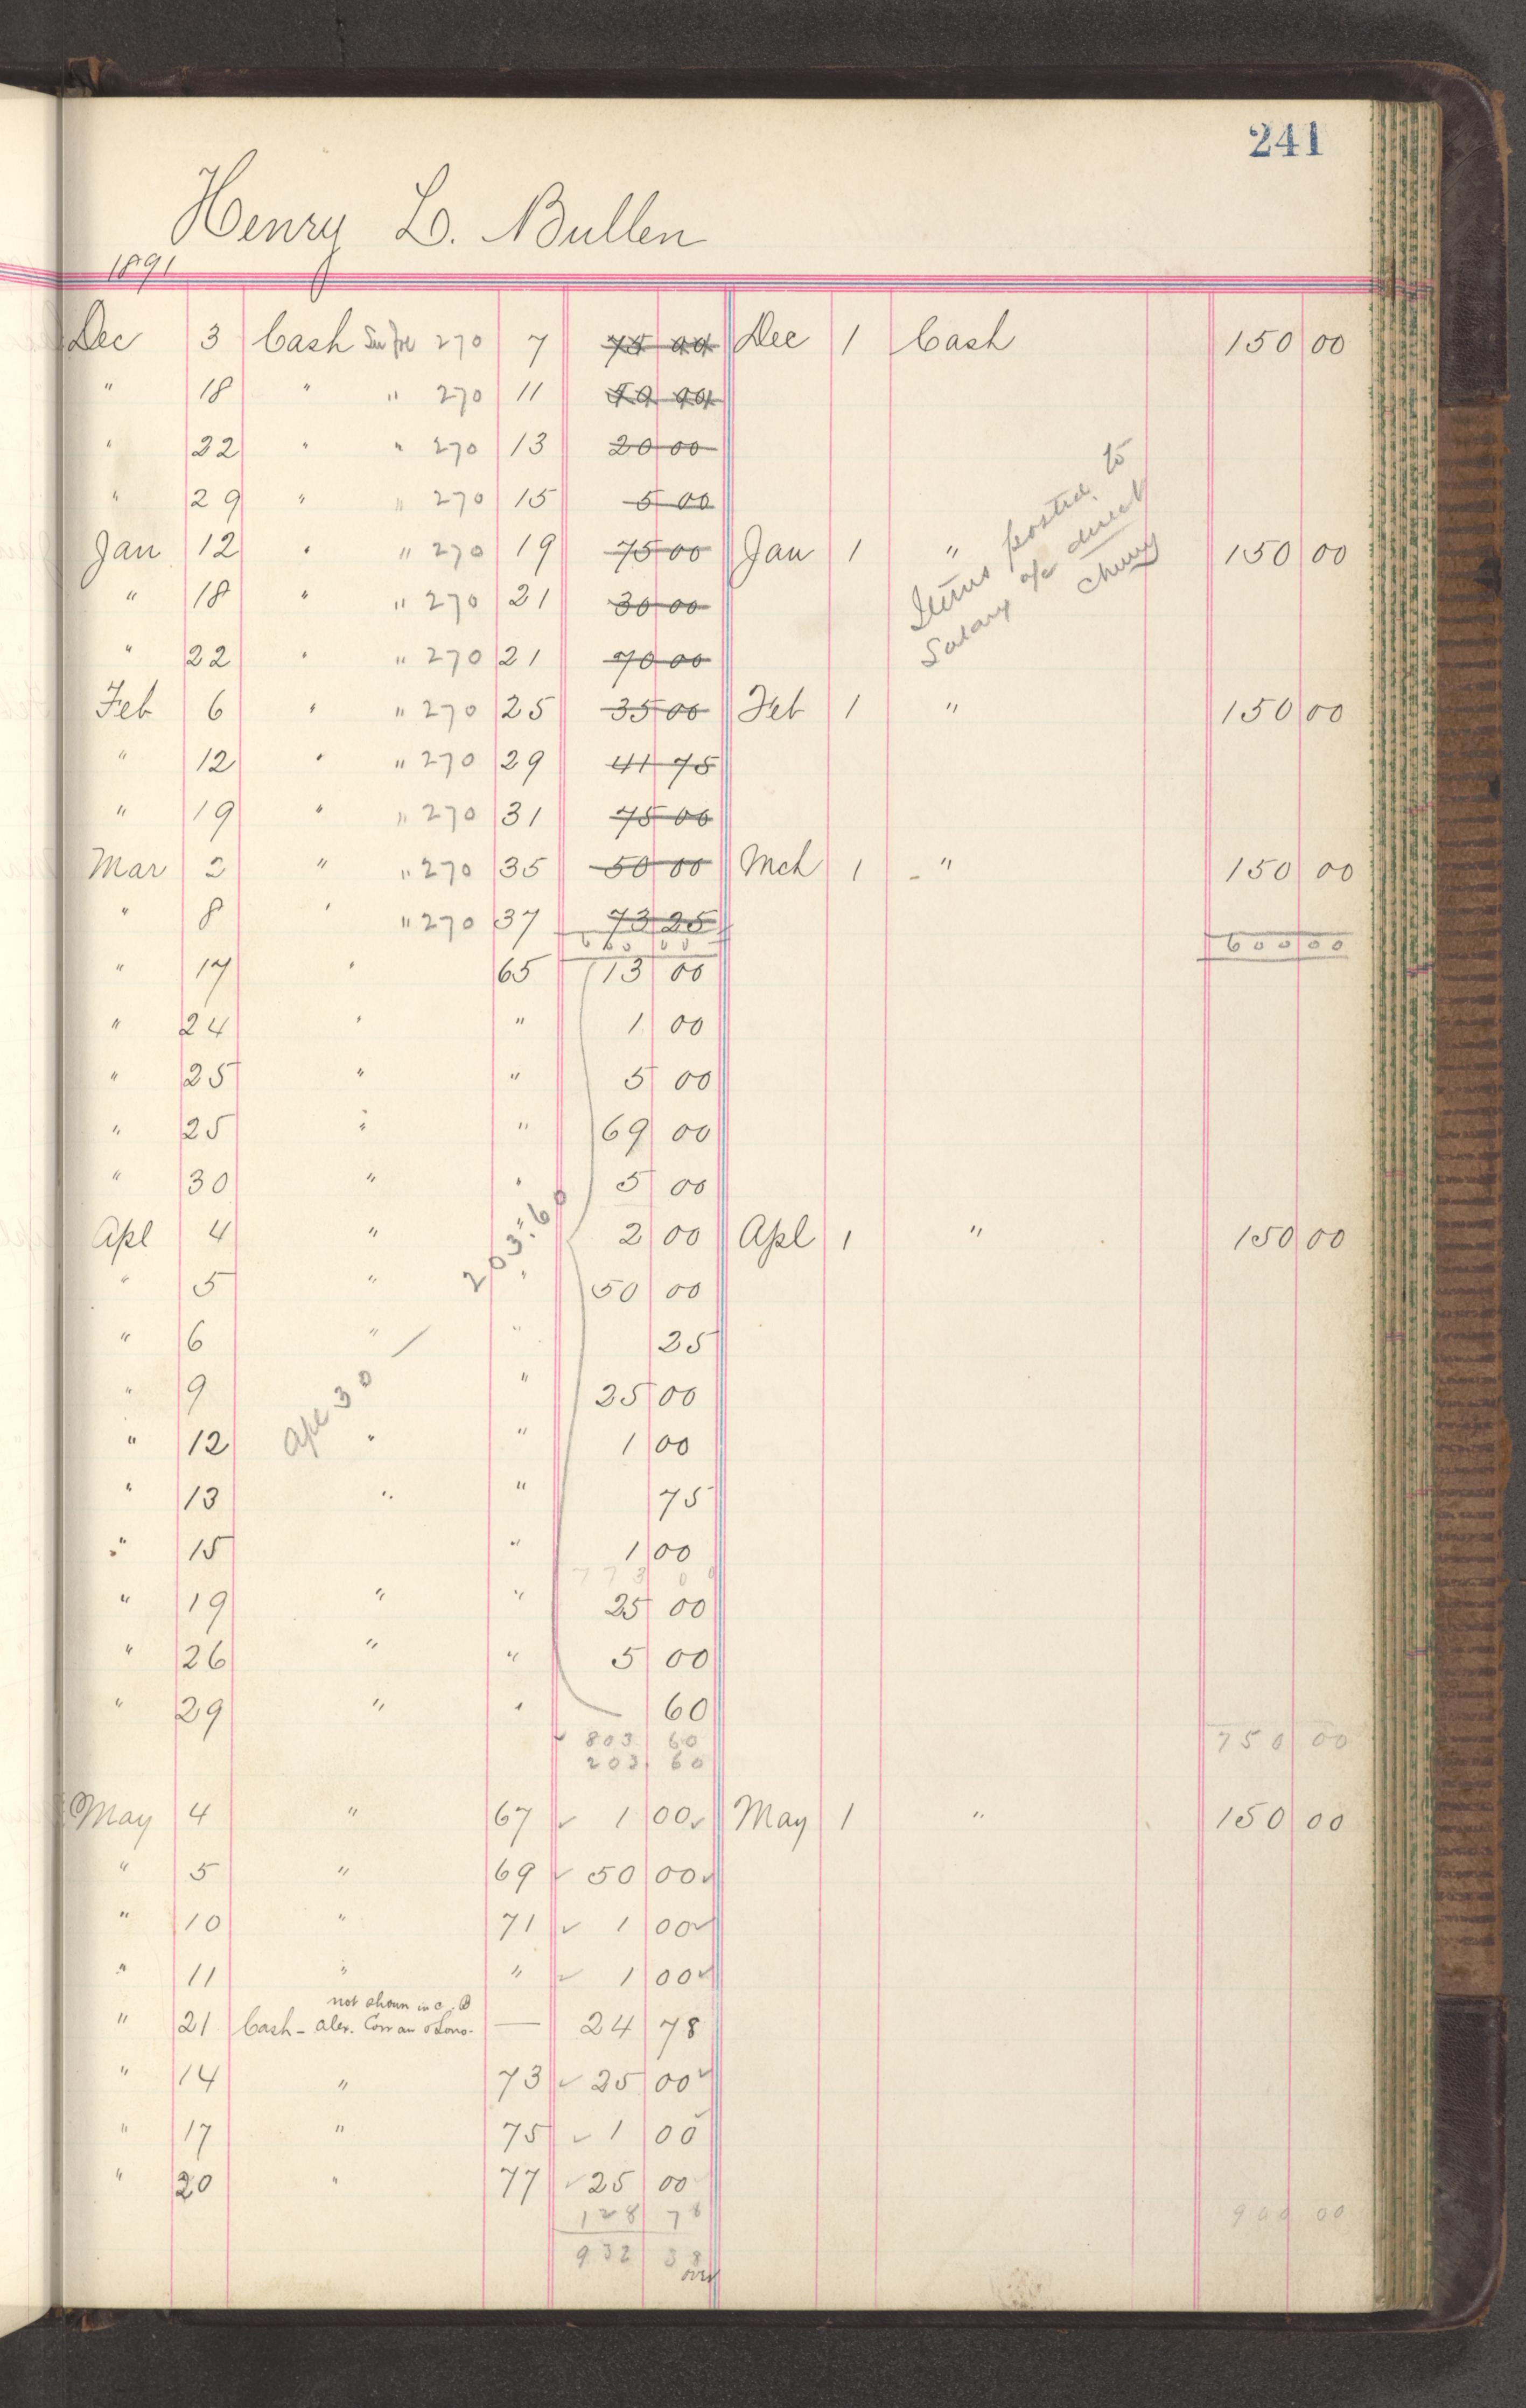 241
Henry L. Bullen
1891
Dec 3 Cash 270 7 75 00 Dec 1 Cash 150 00
" 18 " " 270 11 50 00
" 22 " " 270 13 20 00
" 29 " " 270 15 5 00
Jan 12 " " 270 19 75 00 Jan 1 " 150 00
" 18 " " 270 21 30 00
" 22 " " 270 21 70 00
Items posted to
Salary a/c direct
Feb 6 " " 270 25 35 00 Feb 1 " 150 00
" 12 " " 270 29 41 75
" 19 " " 270 31 75 00
Mar 2 " " 270 35 50 00 Mch 1 " 150 00
" 8 " " 270 37 73 25
600 00 600 00
" 17 " 65 13 00
" 24 " " 1 00
" 25 " " 5 00
" 25 " " 69 00
" 30 " " 5 00
Apl 4 " " 2 00 Apl 1 " 150 00
" 5 " " 50 00
" 6 " " 25
" 9 " 25 00
Apl 30 — 203.60
" 12 " " 1 00
" 13 " " 75
" 15 " 1 00
773 00
" 19 " " 25 00
" 26 " " 5 00
" 29 " " 60
803 60 750 00
203 60
May 4 " 67 1 00 May 1 " 150 00
" 5 " 69 50 00
" 10 " 71 1 00
" 11 " " 1 00
not shown in C.B
" 21 Cash - Alex. Cowan & Sons - — 24 78
" 14 " 73 25 00
" 17 " 75 1 00
" 20 " 77 25 00
128 78 900 00
932 38
over